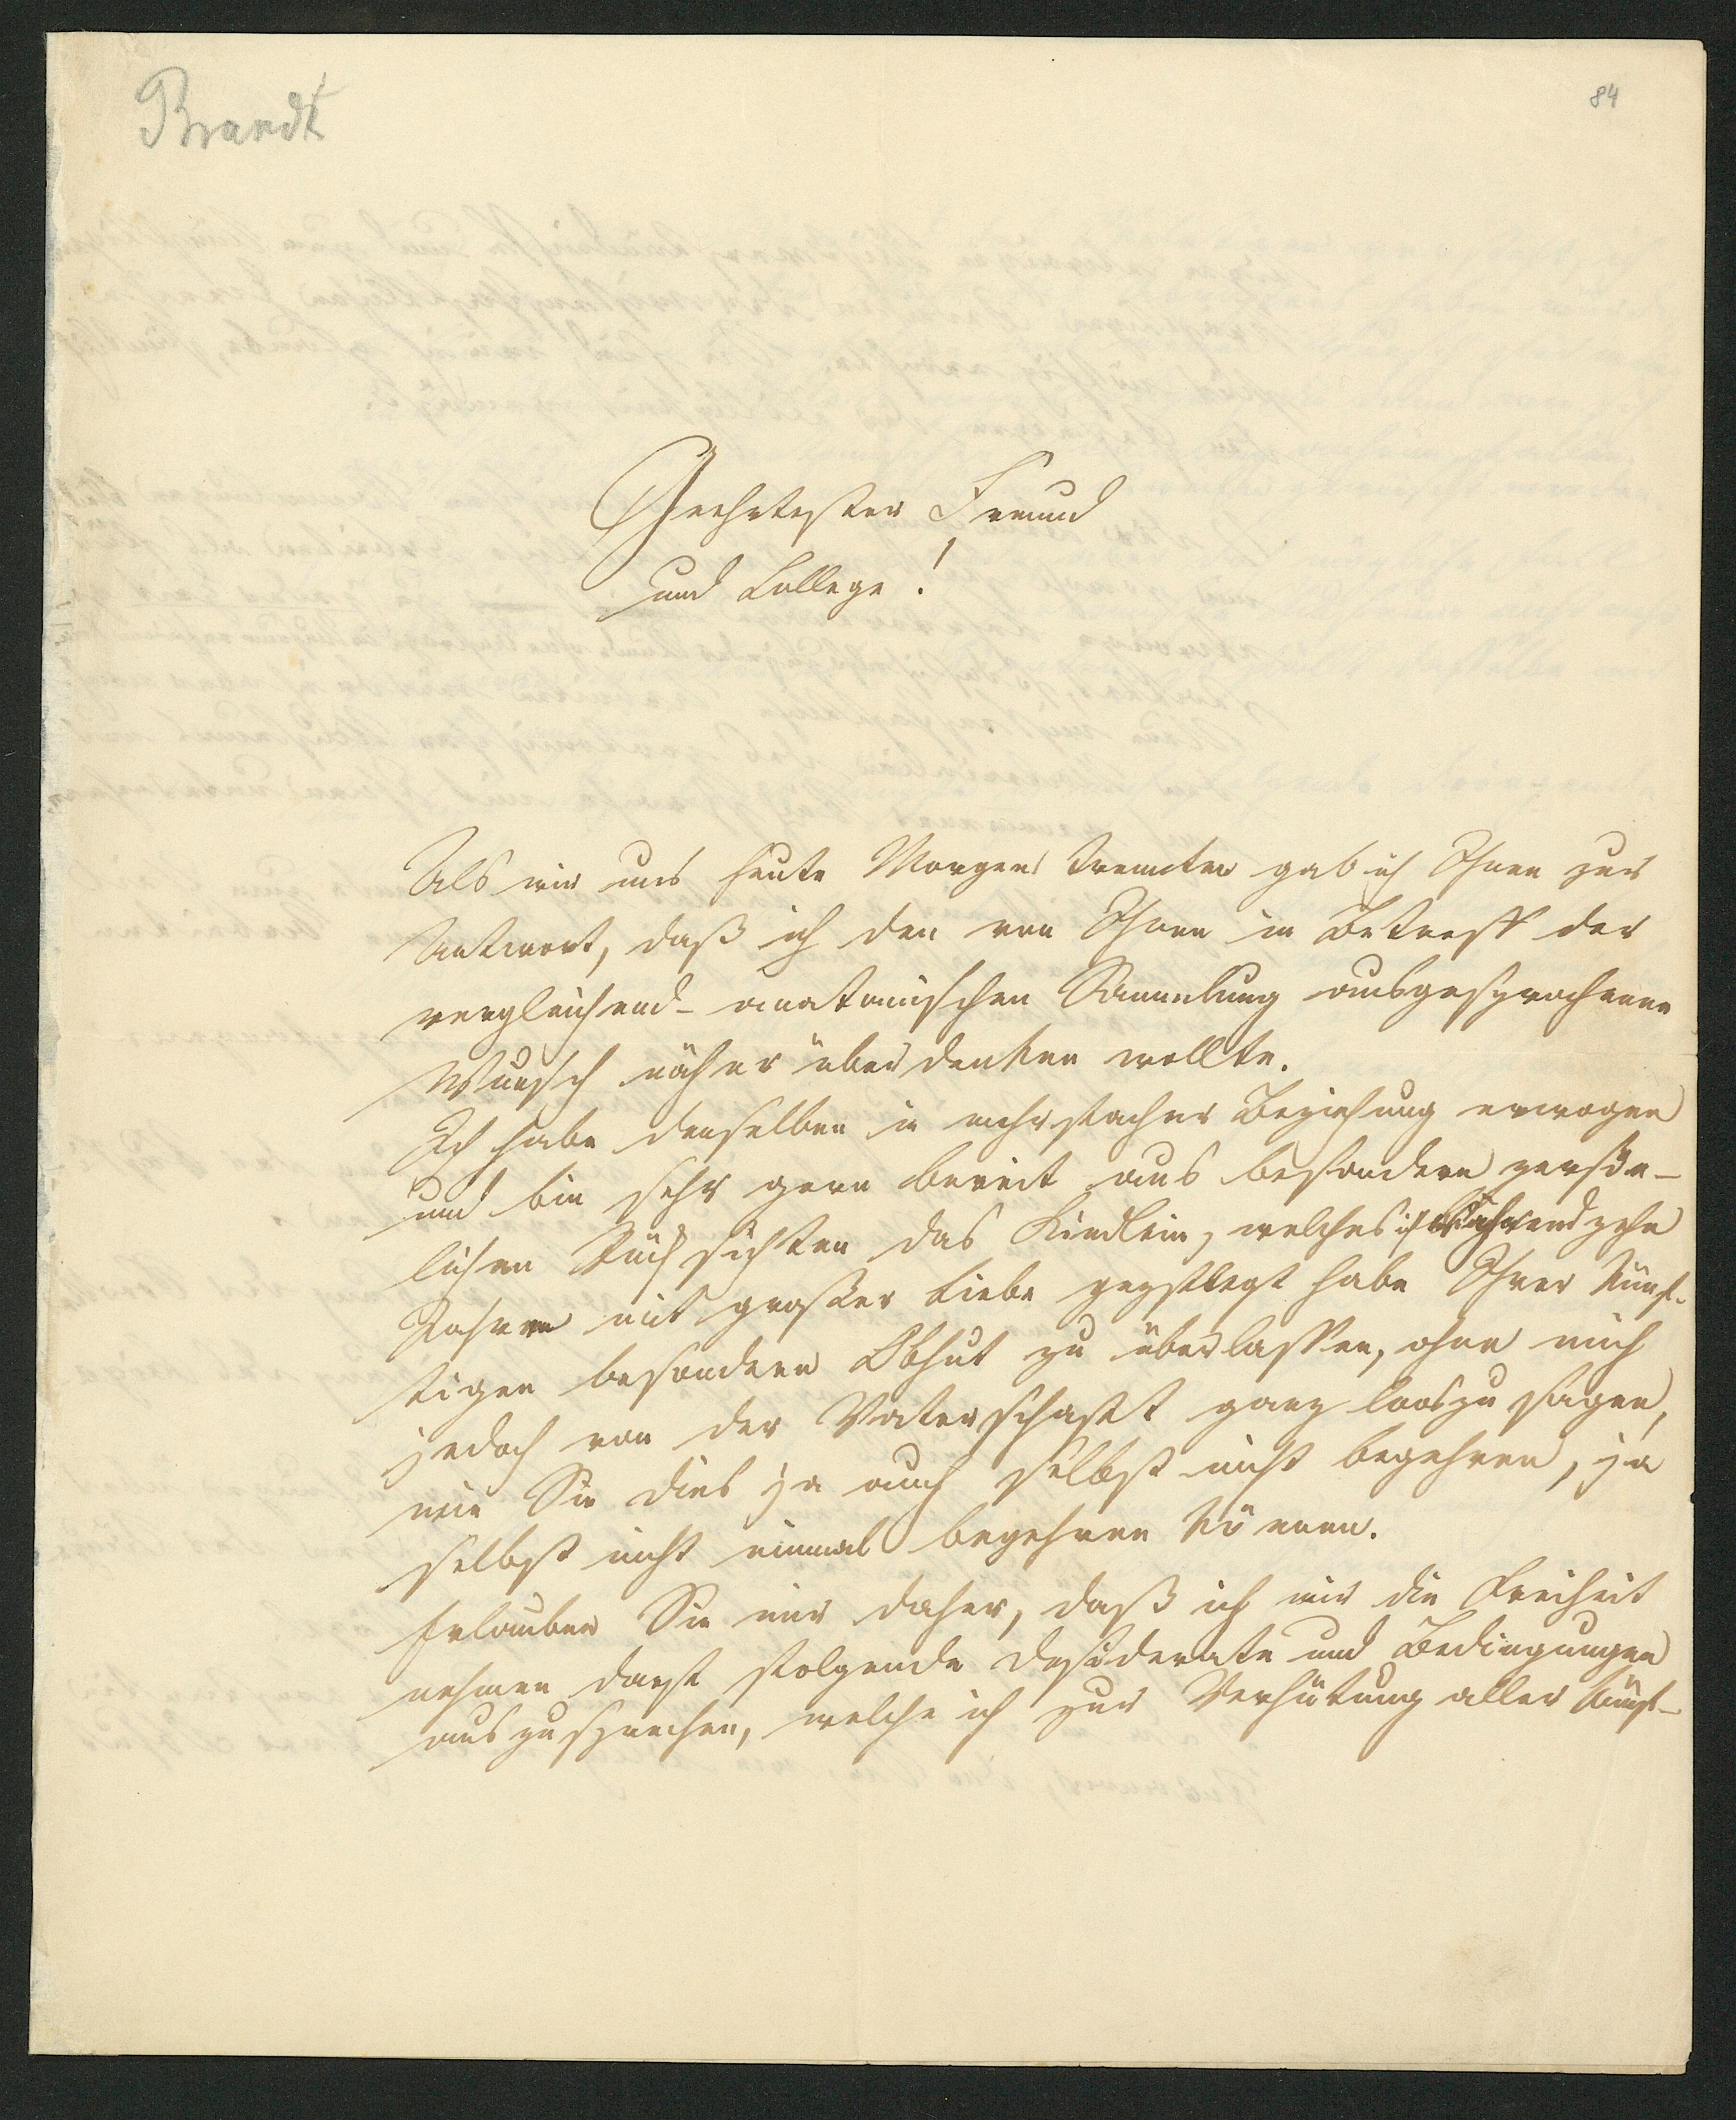 Brandt
84
Geehrtester Freund
und College!
Als wir uns heute Morgen trennten gab ich Ihnen zur
Antwort, daß ich den von Ihnen in Betreff der
vergleichend-anatomischen Sammlung ausgesprochenen
Wunsch näher überdenken wollte.
Ich habe denselben in mehrfacher Beziehung erwogen
und bin sehr gern bereit aus besondern persön-
lichen Rücksichten das Kindlein, welches ich während zehn
Jahren mit großer Liebe gepflegt habe Ihrer künf-
tigen besondern Obhut zu überlassen, ohne mich
jedoch von der Vaterschaft ganz loszusagen,
wie Sie dies ja auch selbst nicht begehren, ja
selbst nicht einmal begehren können.
Erlauben Sie mir daher, daß ich mir die Freiheit
nehmen darf folgende Desiderate und Bedingungen
auszusprechen, welche ich zur Verhütung aller künf-